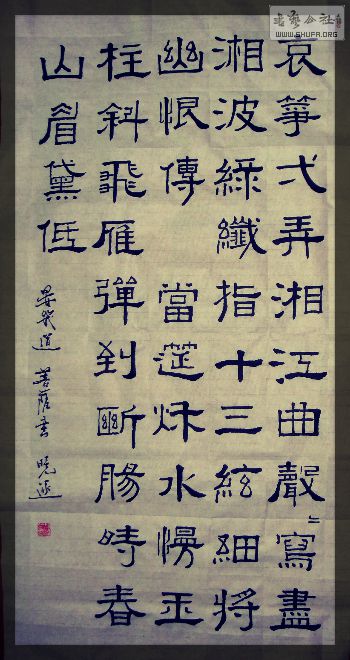 書藝公社
WWW.SHUFA.ORG
哀箏弌弄湘江曲聲〻寫盡
湘波綠纖指十三絃細將
幽恨傳 當筵秌水慢玉
柱斜飛雁彈到斷腸時春
山眉黛低
晏幾道 菩薩 書 曉